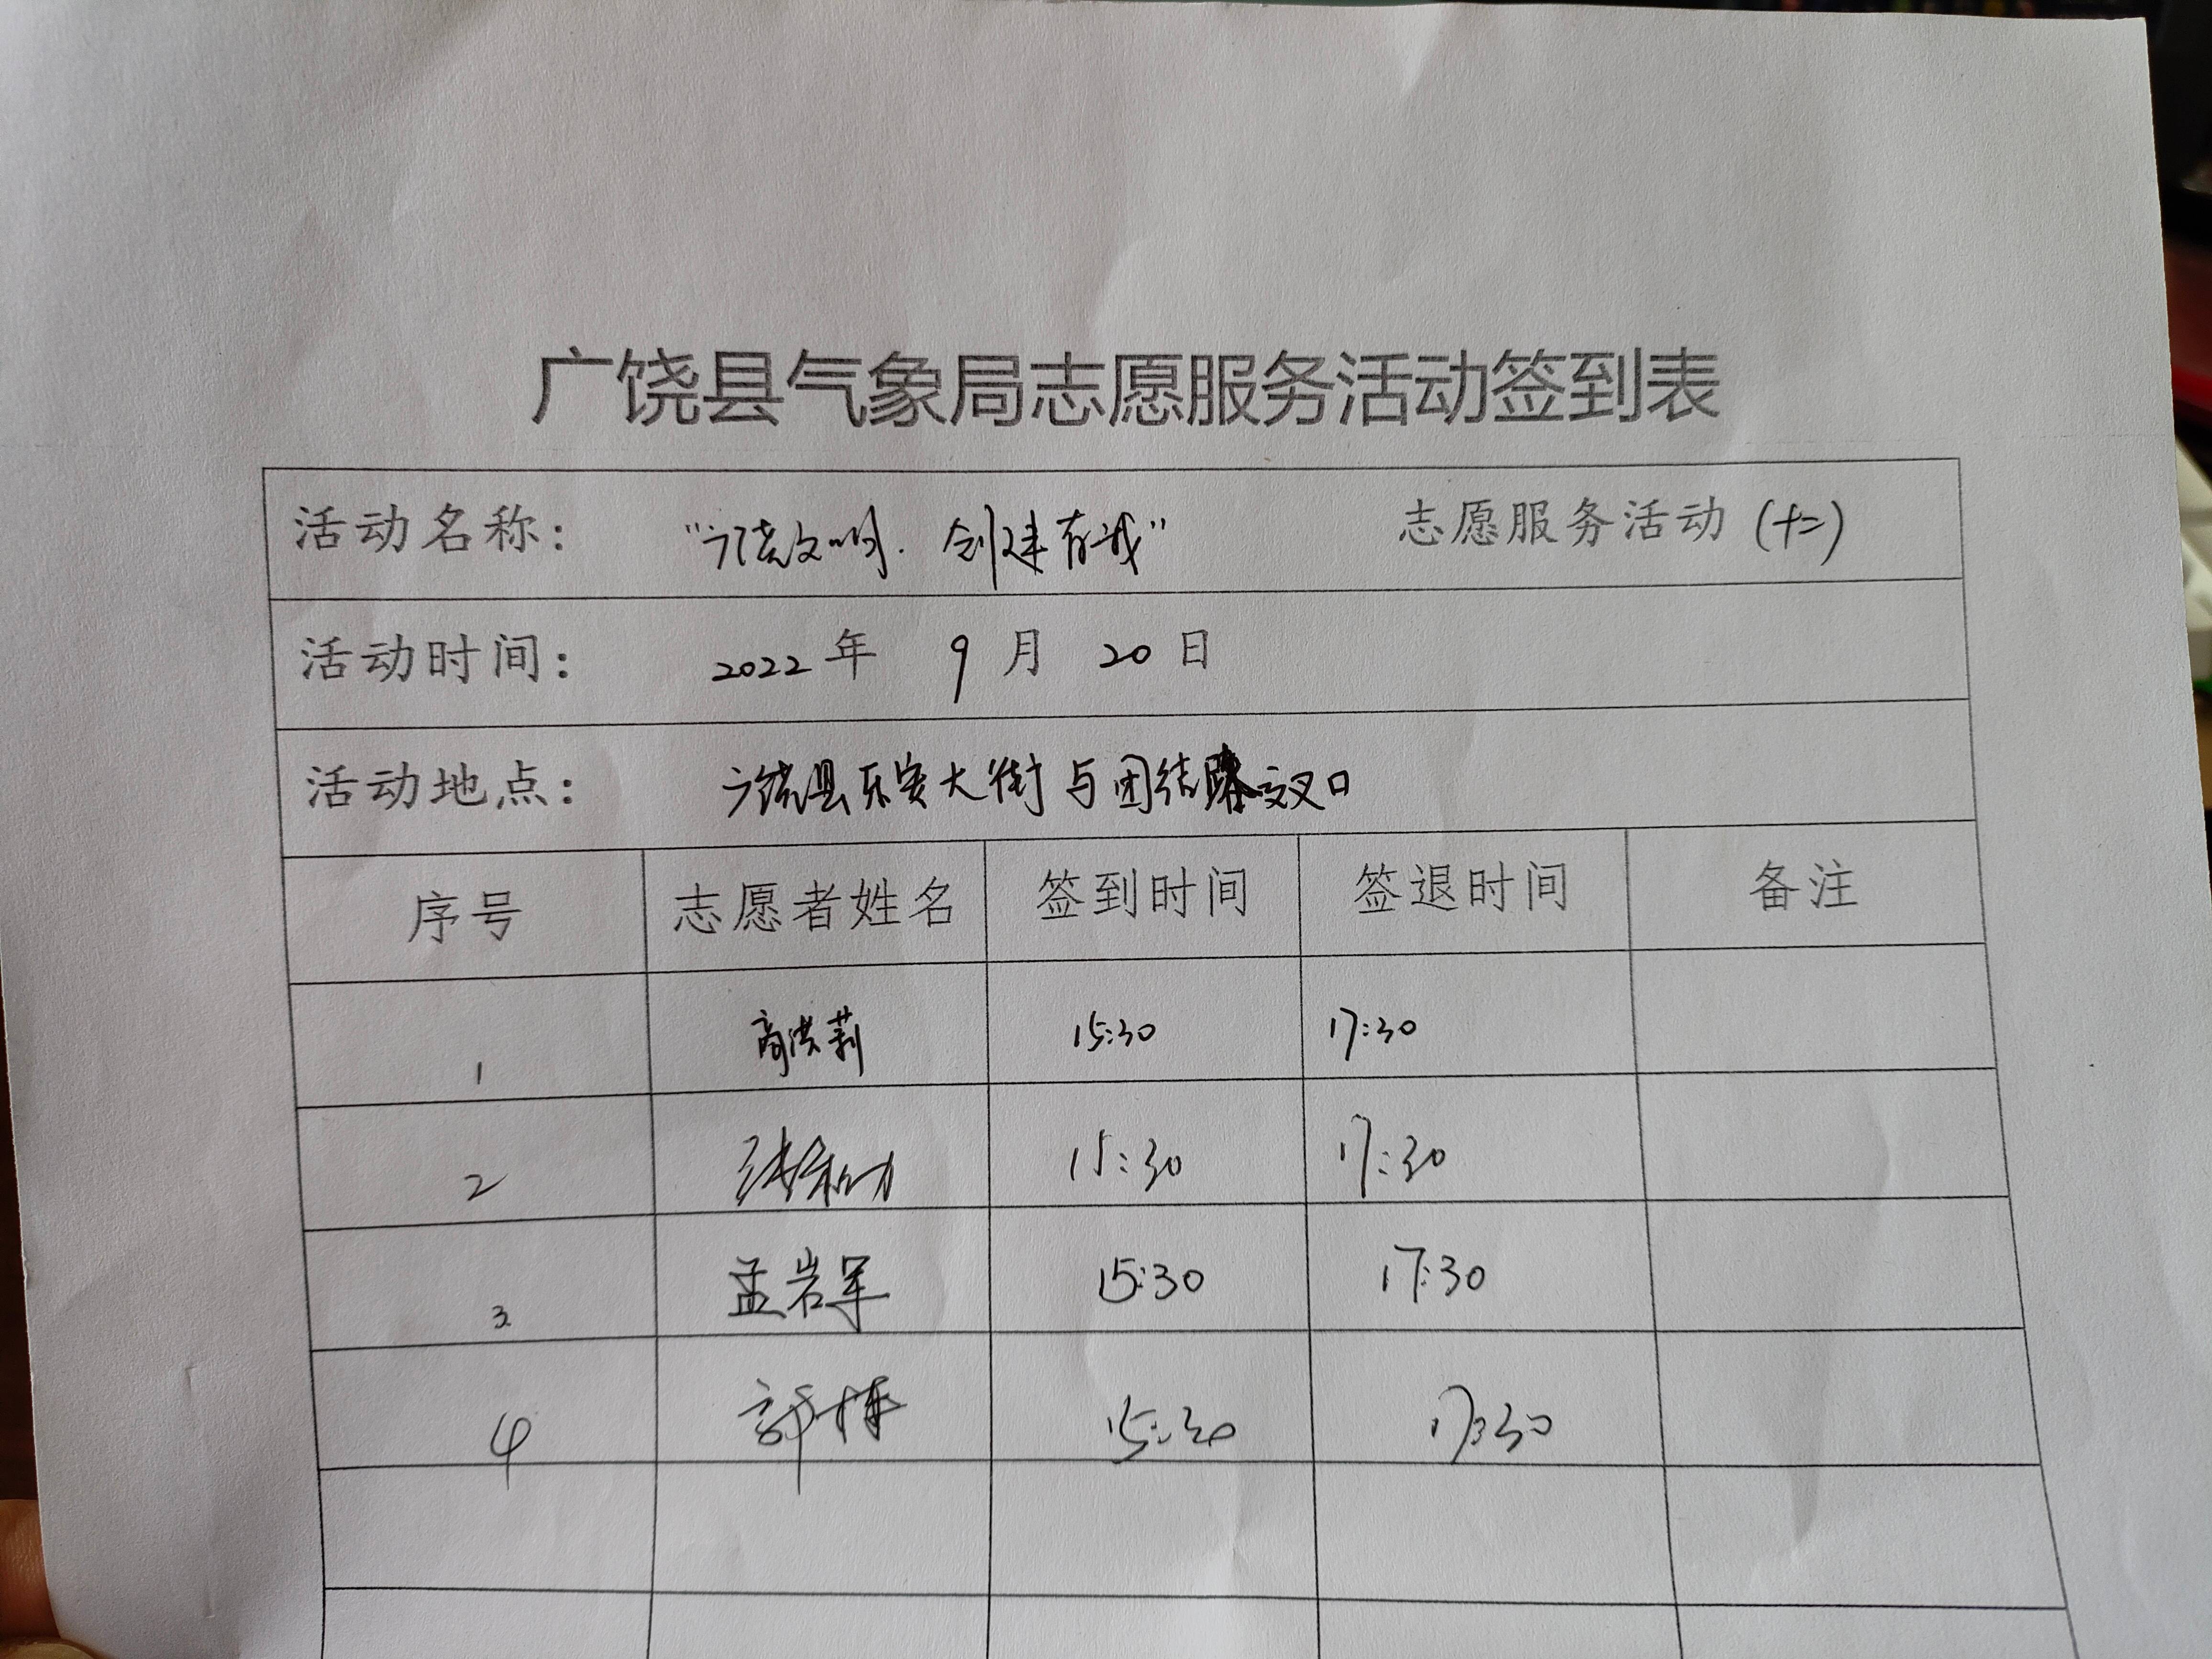 广饶县气象局志愿服务活动签到表
活动名称： “广饶文明，创建有我” 志愿服务活动（十二）
活动时间： 2022年 9月 20日
活动地点： 广饶县乐安大街与团结路交叉口
序号 志愿者姓名 签到时间 签退时间 备注
1 高洪莉 15:30 17:30
2 15:30 17:30
3 孟岩军 15:30 17:30
4 郭栋 15:30 17:30